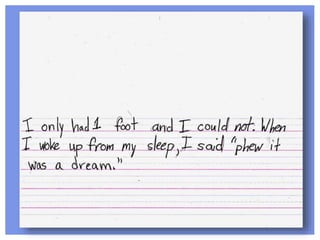 I only had 1 foot and I could not. When
I woke up from my sleep, I said "phew it
was a dream."